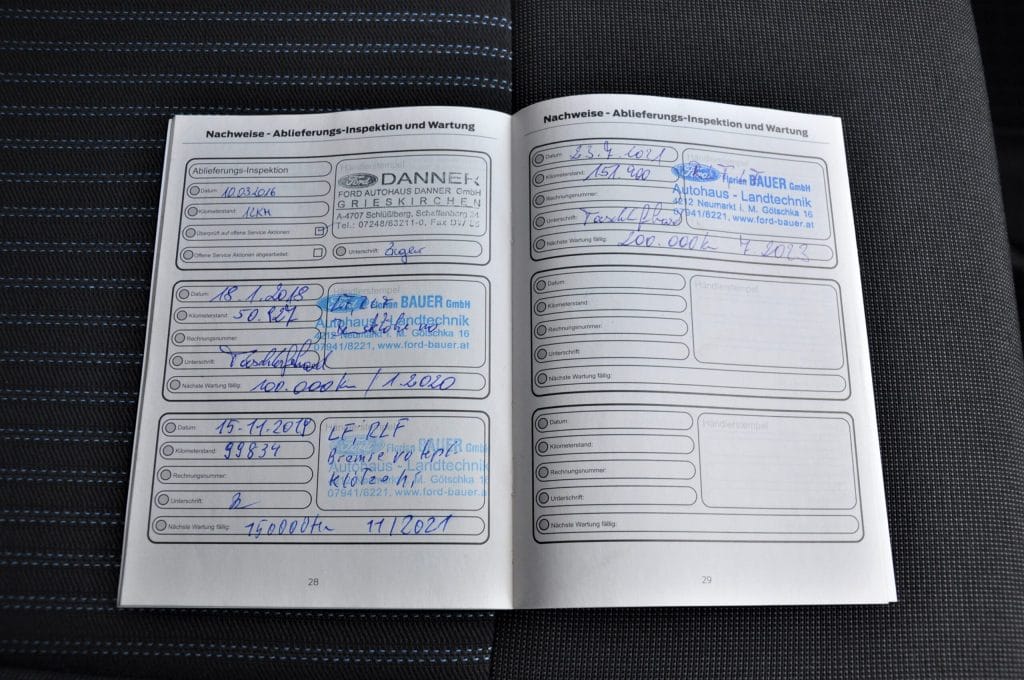 Nachweise - Ablieferungs-Inspektion und Wartung
Ablieferungs-Inspektion
Händlerstempel
Datum: 10.03.2016
Kilometerstand: 12KM
Überprüft auf offene Service Aktionen:
Offene Service Aktionen abgearbeitet:
Ford DANNER
FORD AUTOHAUS DANNER GmbH
GRIESKIRCHEN
A-4707 Schlüßlberg, Schallenberg 24
Tel.: 07248/63211-0, Fax DW
Unterschrift:
Datum: 18.1.2018
Kilometerstand: 50.927
Rechnungsnummer:
Unterschrift:
Nächste Wartung fällig: 100.000km / 1.2020
Florian BAUER GmbH
Autohaus - Landtechnik
4212 Neumarkt i. M. Götschka 16
07941/8221, www.ford-bauer.at
Datum: 15.11.2019
Kilometerstand: 99834
Rechnungsnummer:
Unterschrift:
Nächste Wartung fällig: 11/2021
LF, RLF
Florian BAUER GmbH
Autohaus - Landtechnik
4212 Neumarkt i. M. Götschka 16
07941/8221, www.ford-bauer.at
28
Nachweise - Ablieferungs-Inspektion und Wartung
Datum: 23.7.2021
Kilometerstand: 151.900
Rechnungsnummer:
Unterschrift:
Nächste Wartung fällig: 200.000km 7 2023
Ford Florian BAUER GmbH
Autohaus - Landtechnik
4212 Neumarkt i. M. Götschka 16
07941/8221, www.ford-bauer.at
Datum:
Kilometerstand:
Rechnungsnummer:
Unterschrift:
Nächste Wartung fällig:
Händlerstempel
Datum:
Kilometerstand:
Rechnungsnummer:
Unterschrift:
Nächste Wartung fällig:
Händlerstempel
29